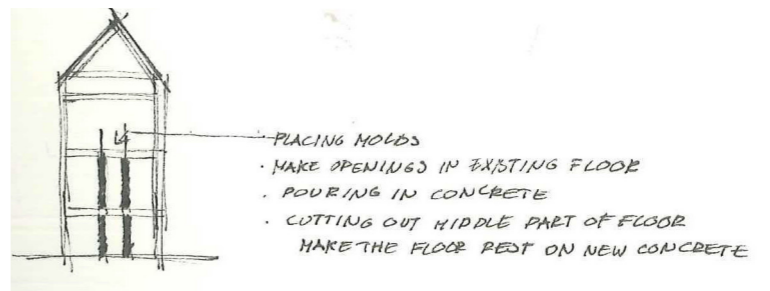 PLACING MOLDS
. MAKE OPENINGS IN EXISTING FLOOR
. POURING IN CONCRETE
. CUTTING OUT MIDDLE PART OF FLOOR
MAKE THE FLOOR REST ON NEW CONCRETE